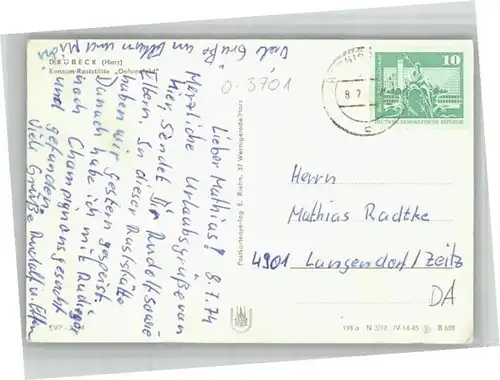 DRÜBECK (Harz)
Konsum-Raststätte
Viele Grüße an
0-3701
Lieber Mathias! 8.7.74
Herzliche Urlaubsgrüße von
hier, sendet Dir Rudolf sowie
Eltern. In dieser Raststätte
haben wir gestern gespeist.
Danach habe ich mit Rüdiger
noch Champignons gesucht
und gefunden.
Viele Grüße Rudolf u. Eltern
Postkartenverlag E. Riehn, 37 Wernigerode/Harz
8.7.
10
DEUTSCHE DEMOKRATISCHE REPUBLIK
Herrn
Mathias Radtke
4901 Langendorf/Zeitz
DA
198 a N 3/72 IV-14-45 B 688